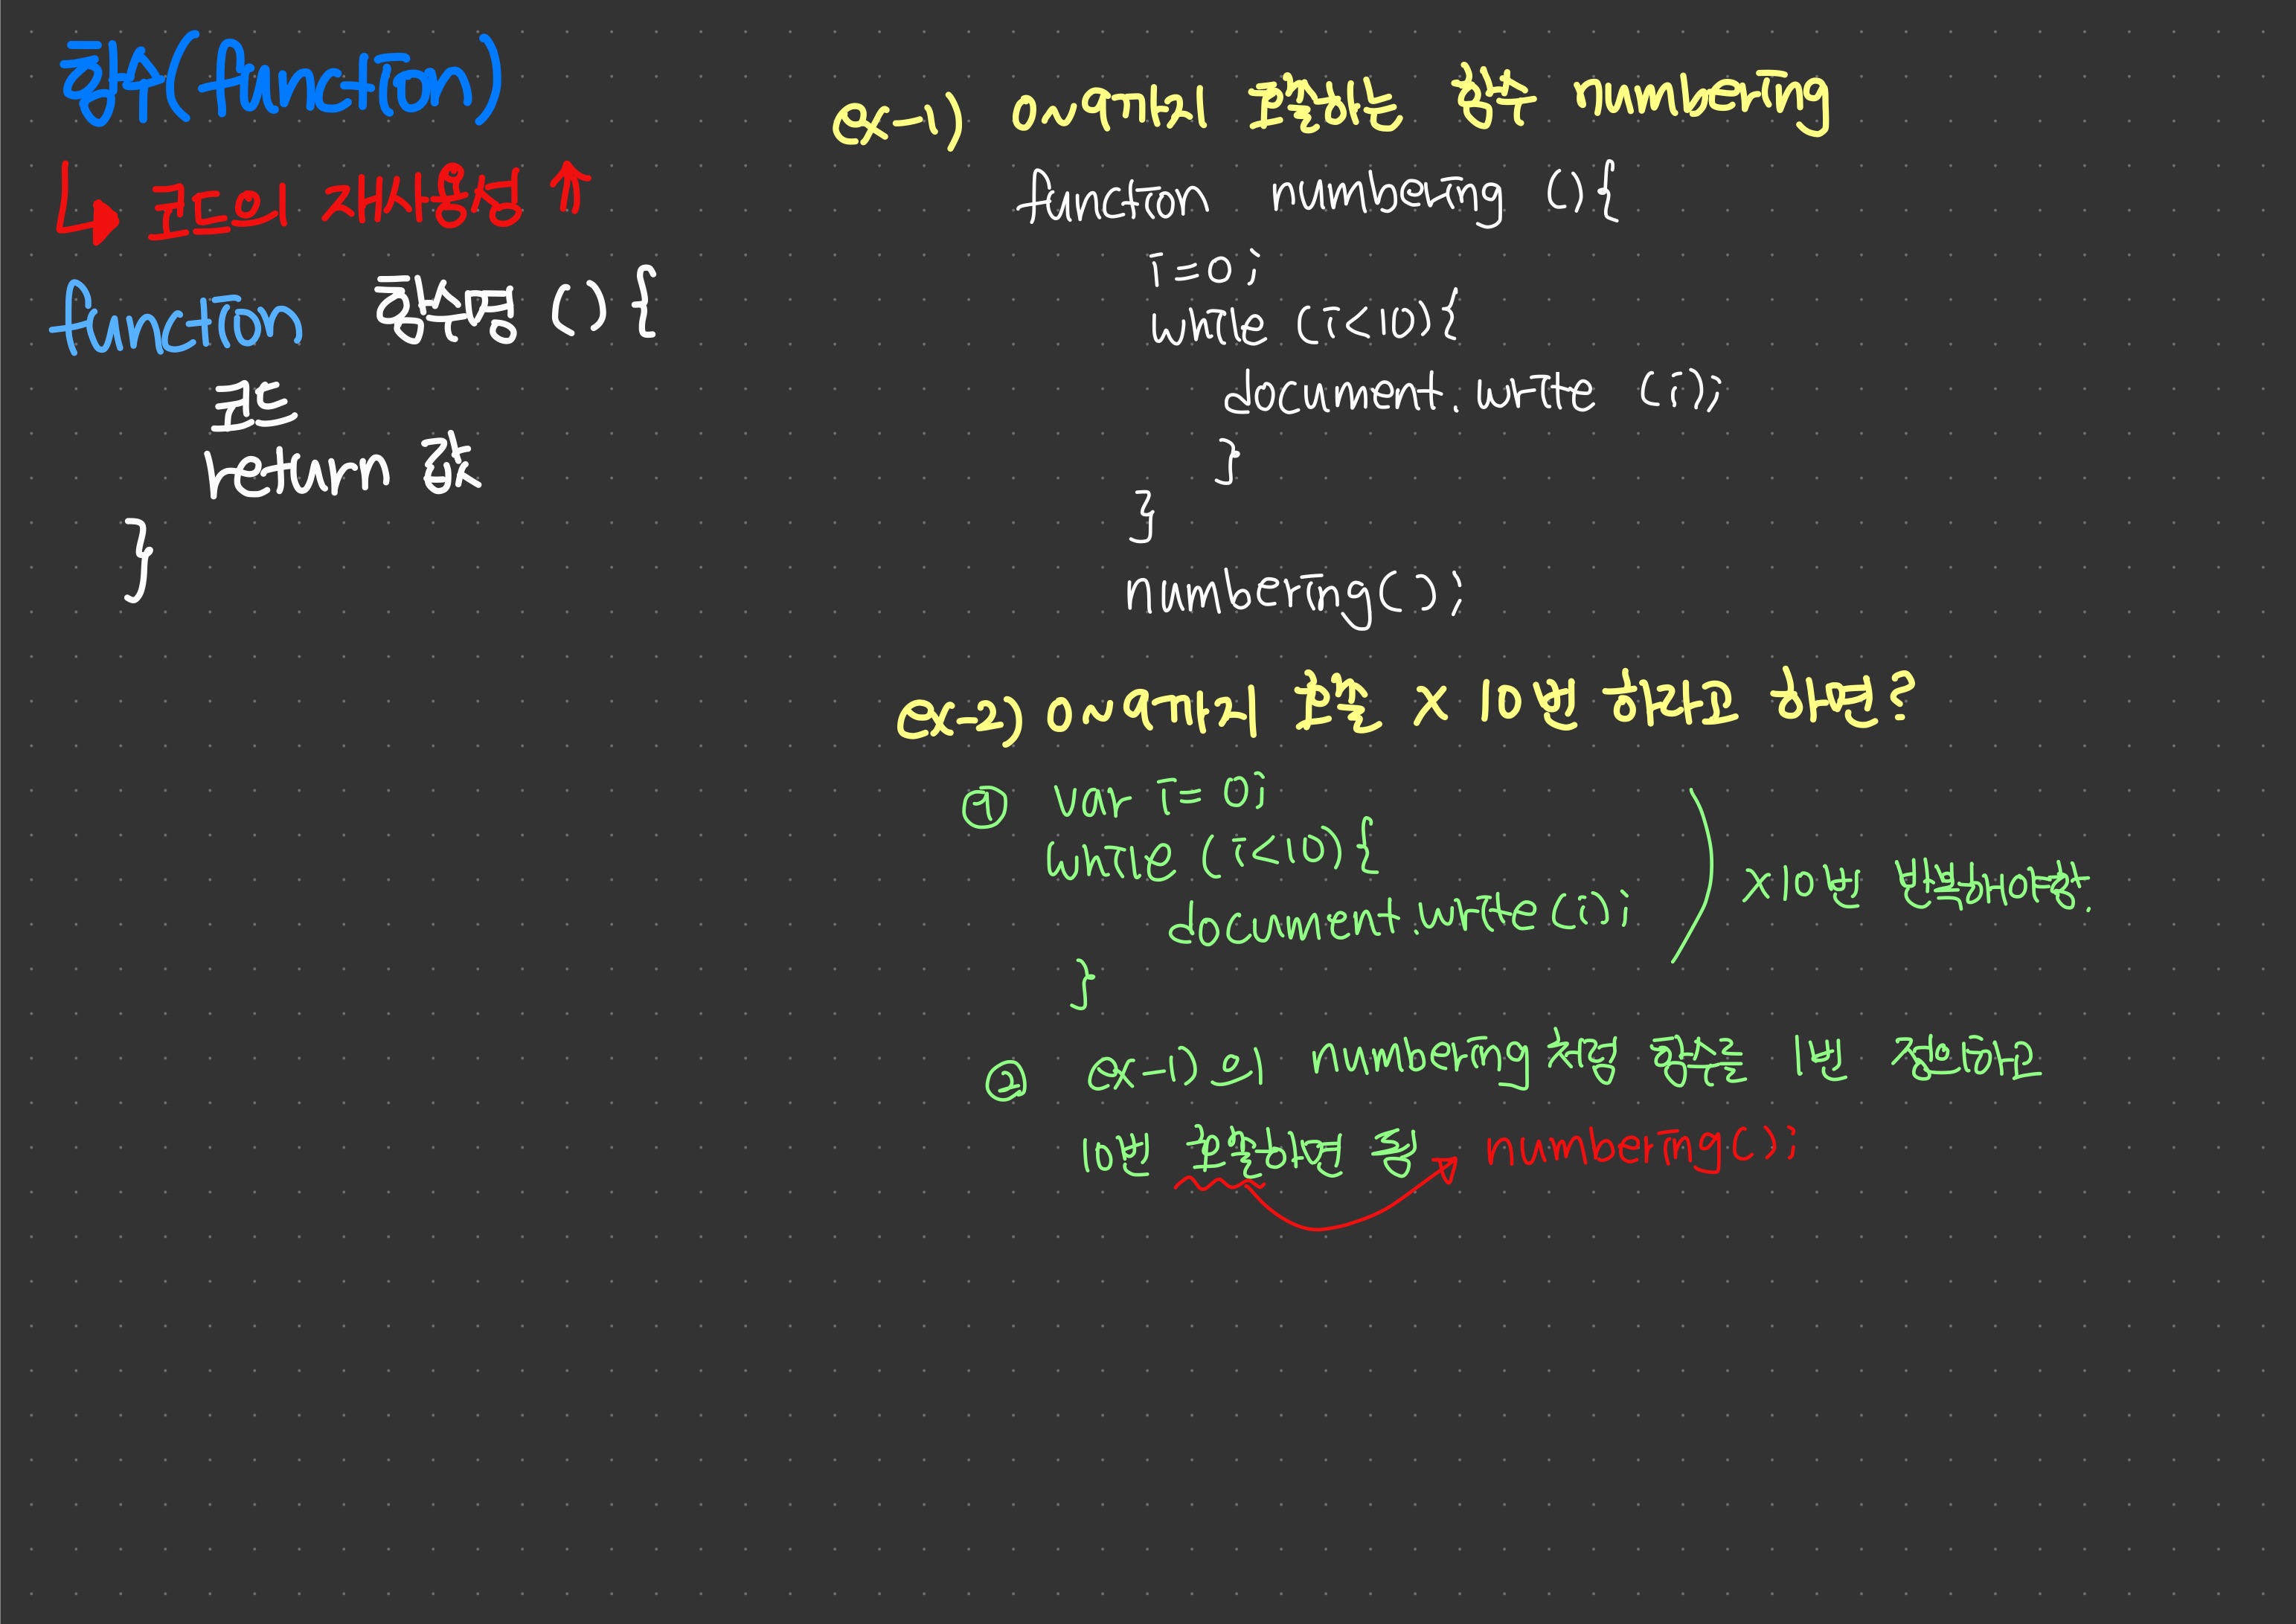 함수(function)
↳ 코드의 재사용성 ↑
function 함수명 () {
코드
return 값
}
ex-1) 0~9까지 호출하는 함수 numbering
function numbering () {
i=0;
while (i<10) {
document.write (i);
}
}
numbering();
ex-2) 0~9까지 호출 x 10번 하라고 하면?
① var i= 0;
while (i<10) {
document.write (i);
}
x10번 반복해야함.
② ex-1)의 numbering처럼 함수를 1번 정의하고
10번 호출하면 됨 numbering();